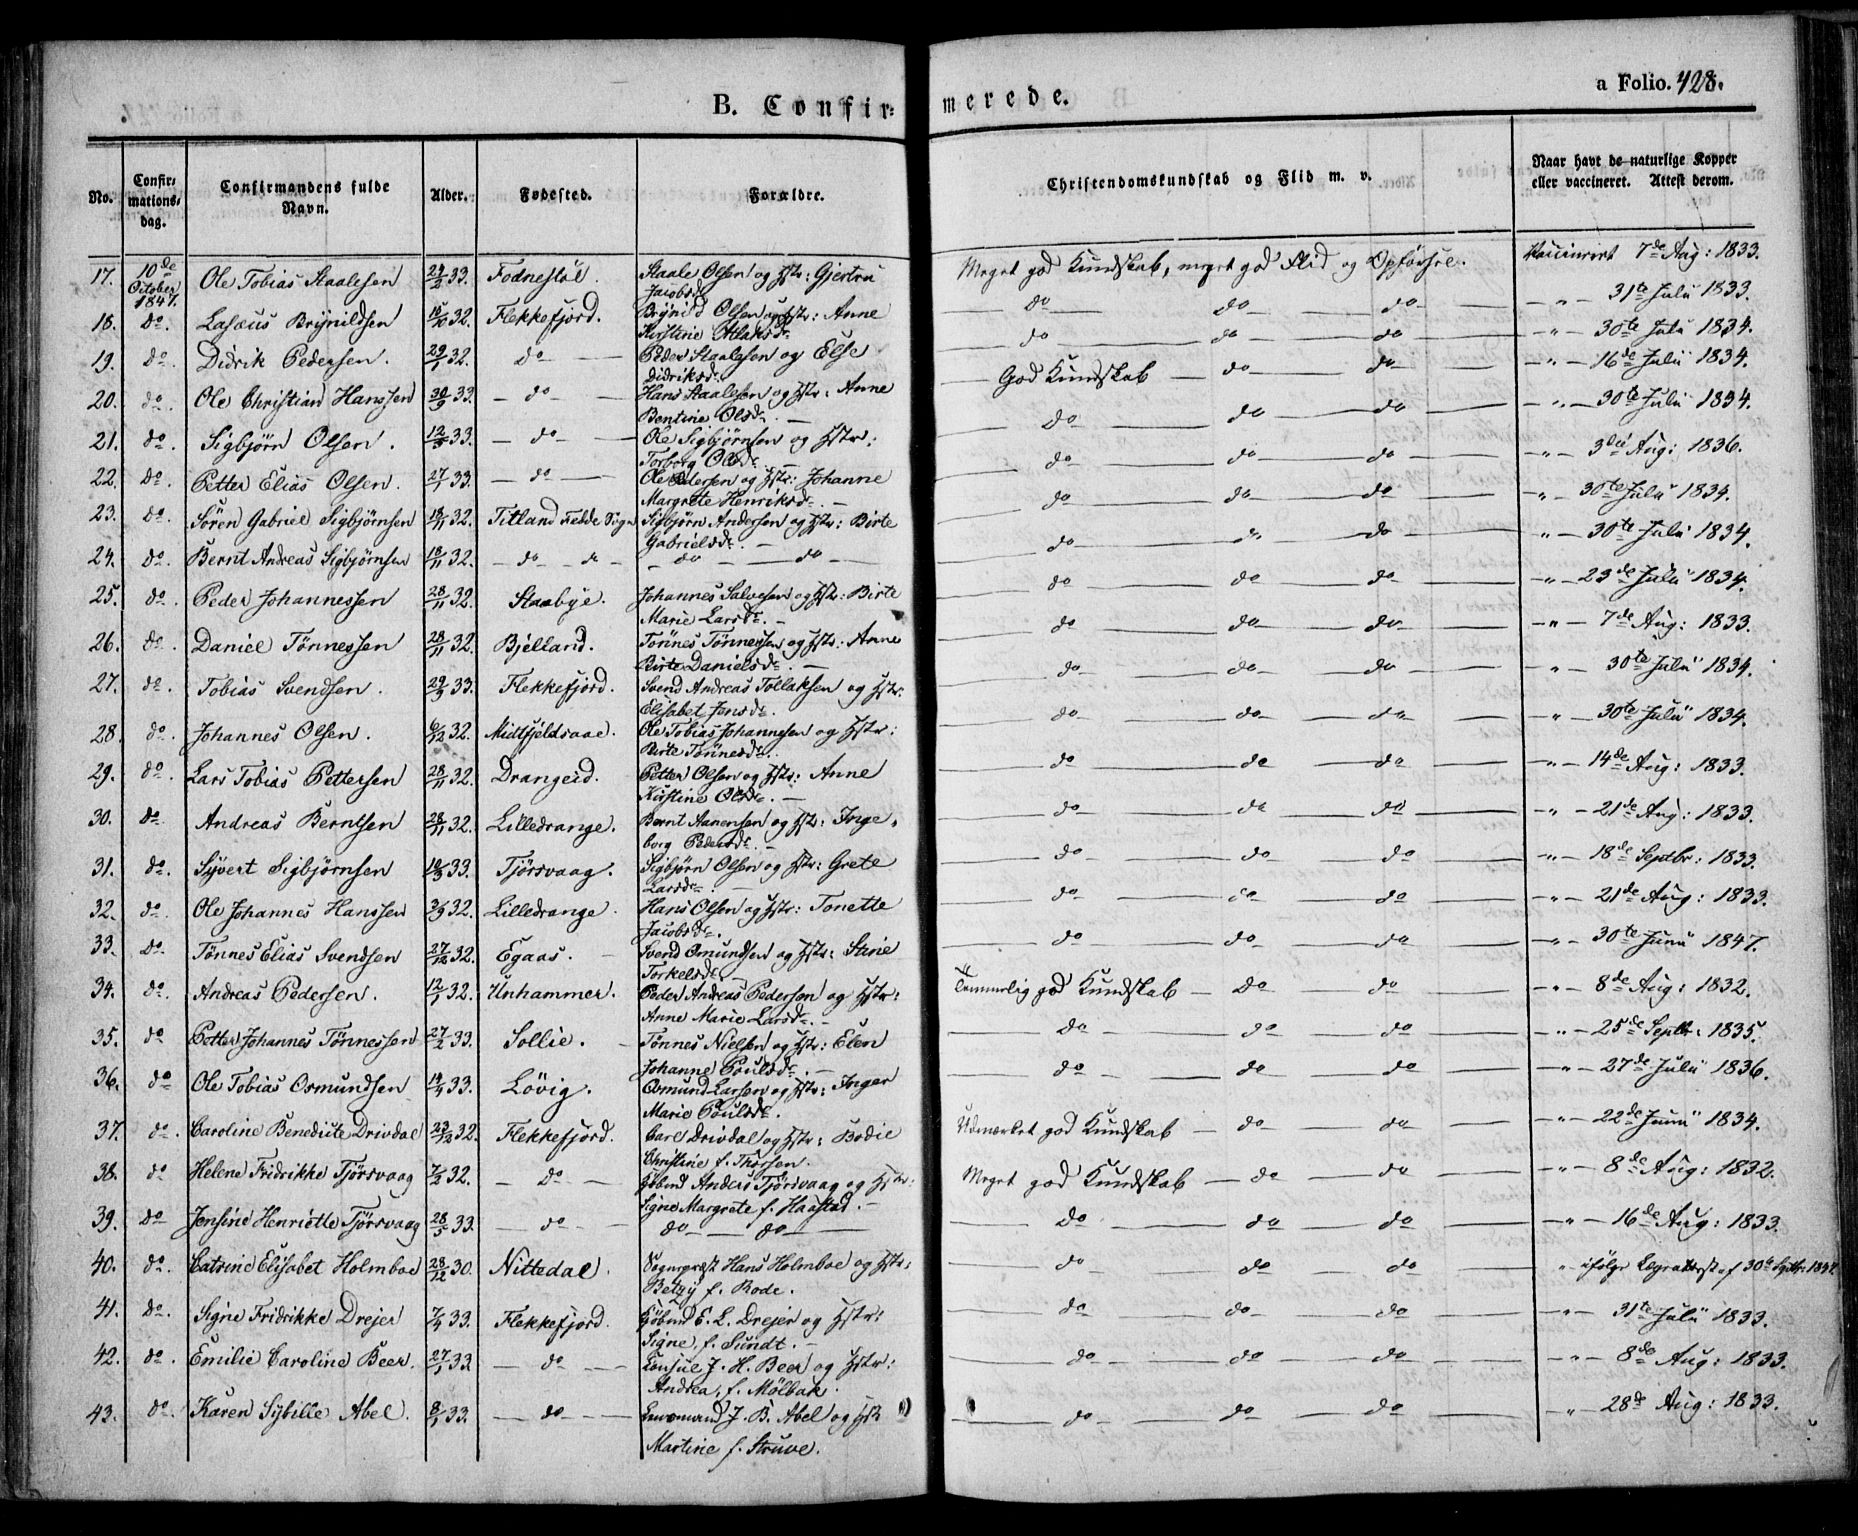 B. Confir- merede.
a Folio. 428.
No. Confirmationsdag. Confirmandens fulde Navn. Alder. Fødested. Forældre. Christendomskundskab og Flid m. v. Naar havt de naturlige Kopper eller vaccineret. Attest derom.
17. 10de October 1847. Ole Tobias Staalesen 33. Fodnestøl. Staale Olsen og Hstr: Gjertru Jacobsd. Meget god Kundskab, meget god Flid og Opførsel. Vaccineret 7de Aug: 1833.
18. do. Lasæus Brynildsen 32. Flekkefjord. Brynild Olsen og Hstr: Anne Kirstine Atlaksd. do do do " 31te Julii 1833.
19. do. Didrik Pedersen. 29/1 32. do Peder Staalesen og Else Didriksd. do do do " 30te Julii 1834.
20. do. Ole Christian Hanssen 33. do Hans Staalesen og Hstr: Anne Bentine Olsd. God Kundskab do do " 16de Julii 1834.
21. do. Sigbjørn Olsen. 33. do Ole Sigbjørnsen og Hstr: Torborg Olsd. do do do " 30te Julii 1834.
22. do. Petter Elias Olsen. 27/1 33. do Ole Pedersen og Hstr: Johanne Margrete Henriksd. do do do " 3die Aug: 1836.
23. do. Søren Gabriel Sigbjørnsen 18/11 32. Titland Fedde Sogn Sigbjørn Andersen og Hstr: Birte Gabrielsd. do do do " 30te Julii 1834.
24. do. Bernt Andreas Sigbjørnsen 18/11 32. do do do do do do do " 30te Julii 1834.
25. do. Peder Johannessen 28/11 32. Staabye. Johannes Salvesen og Hstr: Birte Marie Larsd. do do do " 23de Julii 1834.
26. do. Daniel Tönnessen 28/11 32. Bjelland. Tönnes Tönnessen og Hstr: Anne Birte Danielsd. do do do " 7de Aug: 1833.
27. do. Tobias Svendsen. 33. Flekkefjord. Svend Andreas Tollaksen og Hstr: Elisabet Jensd. do do do " 30te Julii 1834.
28. do. Johannes Olsen. 6/12 32. Midtfjeldsaae. Ole Tobias Johannesen og Hstr: Birte Tönnesd. do do do " 30te Julii 1834.
29. do. Lars Tobias Pettersen 28/11 32. Drangeid. Petter Olsen og Hstr: Anne Kirstine Olsd. do do do " 14de Aug: 1833.
30. do Andreas Berntsen 28/11 32. Lilledrange. Bernt Aanensen og Hstr: Ingeborg Pedersd. do do do " 21de Aug: 1833.
31. do. Syvert Sigbjørnsen 33. Tjörsvaag. Sigbjørn Olsen og Hstr: Grete Larsd. do do do " 18de Septbr: 1833.
32. do. Ole Johannes Hanssen 32. Lilledrange. Hans Olsen og Hstr: Tonette Jacobsd. do do do " 21de Aug: 1833.
33. do. Tönnes Elias Svendsen 27/12 32. Egaas. Svend Omundsen og Hstr: Stine Torkelsd. do do do " 30te Junii 1847.
34. do. Andreas Pedersen. 12/1 32. Unhammer. Peder Andreas Pedersen og Hstr: Anne Marie Larsd. Temmelig god Kundskab do do " 8de Aug: 1832.
35. do Petter Johannes Tönnessen 27/2 33. Sollie. Tönnes Nielsen og Hstr: Elen Johanne Poulsd. do do do " 25de Septbr: 1835.
36. do Ole Tobias Osmundsen 33. Lövig. Osmund Larsen og Hstr: Inger Marie Poulsd. do do do " 27de Julii 1836.
37. do. Caroline Benedicte Drivdal 23/12 32. Flekkefjord. Carl Drivdal og Hstr: Bodie Christine f. Thorsen. Udmærket god Kundskab do do " 22de Junii 1834.
38. do Helene Fridrikke Tjörsvaag 32. do Kjöbmd Anders Tjörsvaag og Hstr: Signe Margrete f. Haastad. Meget god Kundskab do do " 8de Aug: 1832.
39. do Jensine Henriette Tjörsvaag 28/5 33. do do do do do do " 16de Aug: 1833.
40. do. Catrine Elisabet Holmboe 28/12 30. Nittedal. Sognepræst Hans Holmboe og Hstr: Betzy f. Rode. do do do " ifølge Lægeattest af 30te Septbr:
41. do. Signe Fridrikke Drejer 33. Flekkefjord. Kjöbmd E. L. Drejer og Hstr: Signe, f. Sundt. do do do " 31te Julii 1833.
42. do. Emilie Caroline Beer. 27/1 33. do Consul J. H. Beer og Hstr: Andrea, f. Mölbak. do do do " 8de Aug: 1833.
43. do. Karen Sybille Abel. 8/1 33. do J. B. Abel og Hstr Martine f. Struve. do do do " 28de Aug: 1833.